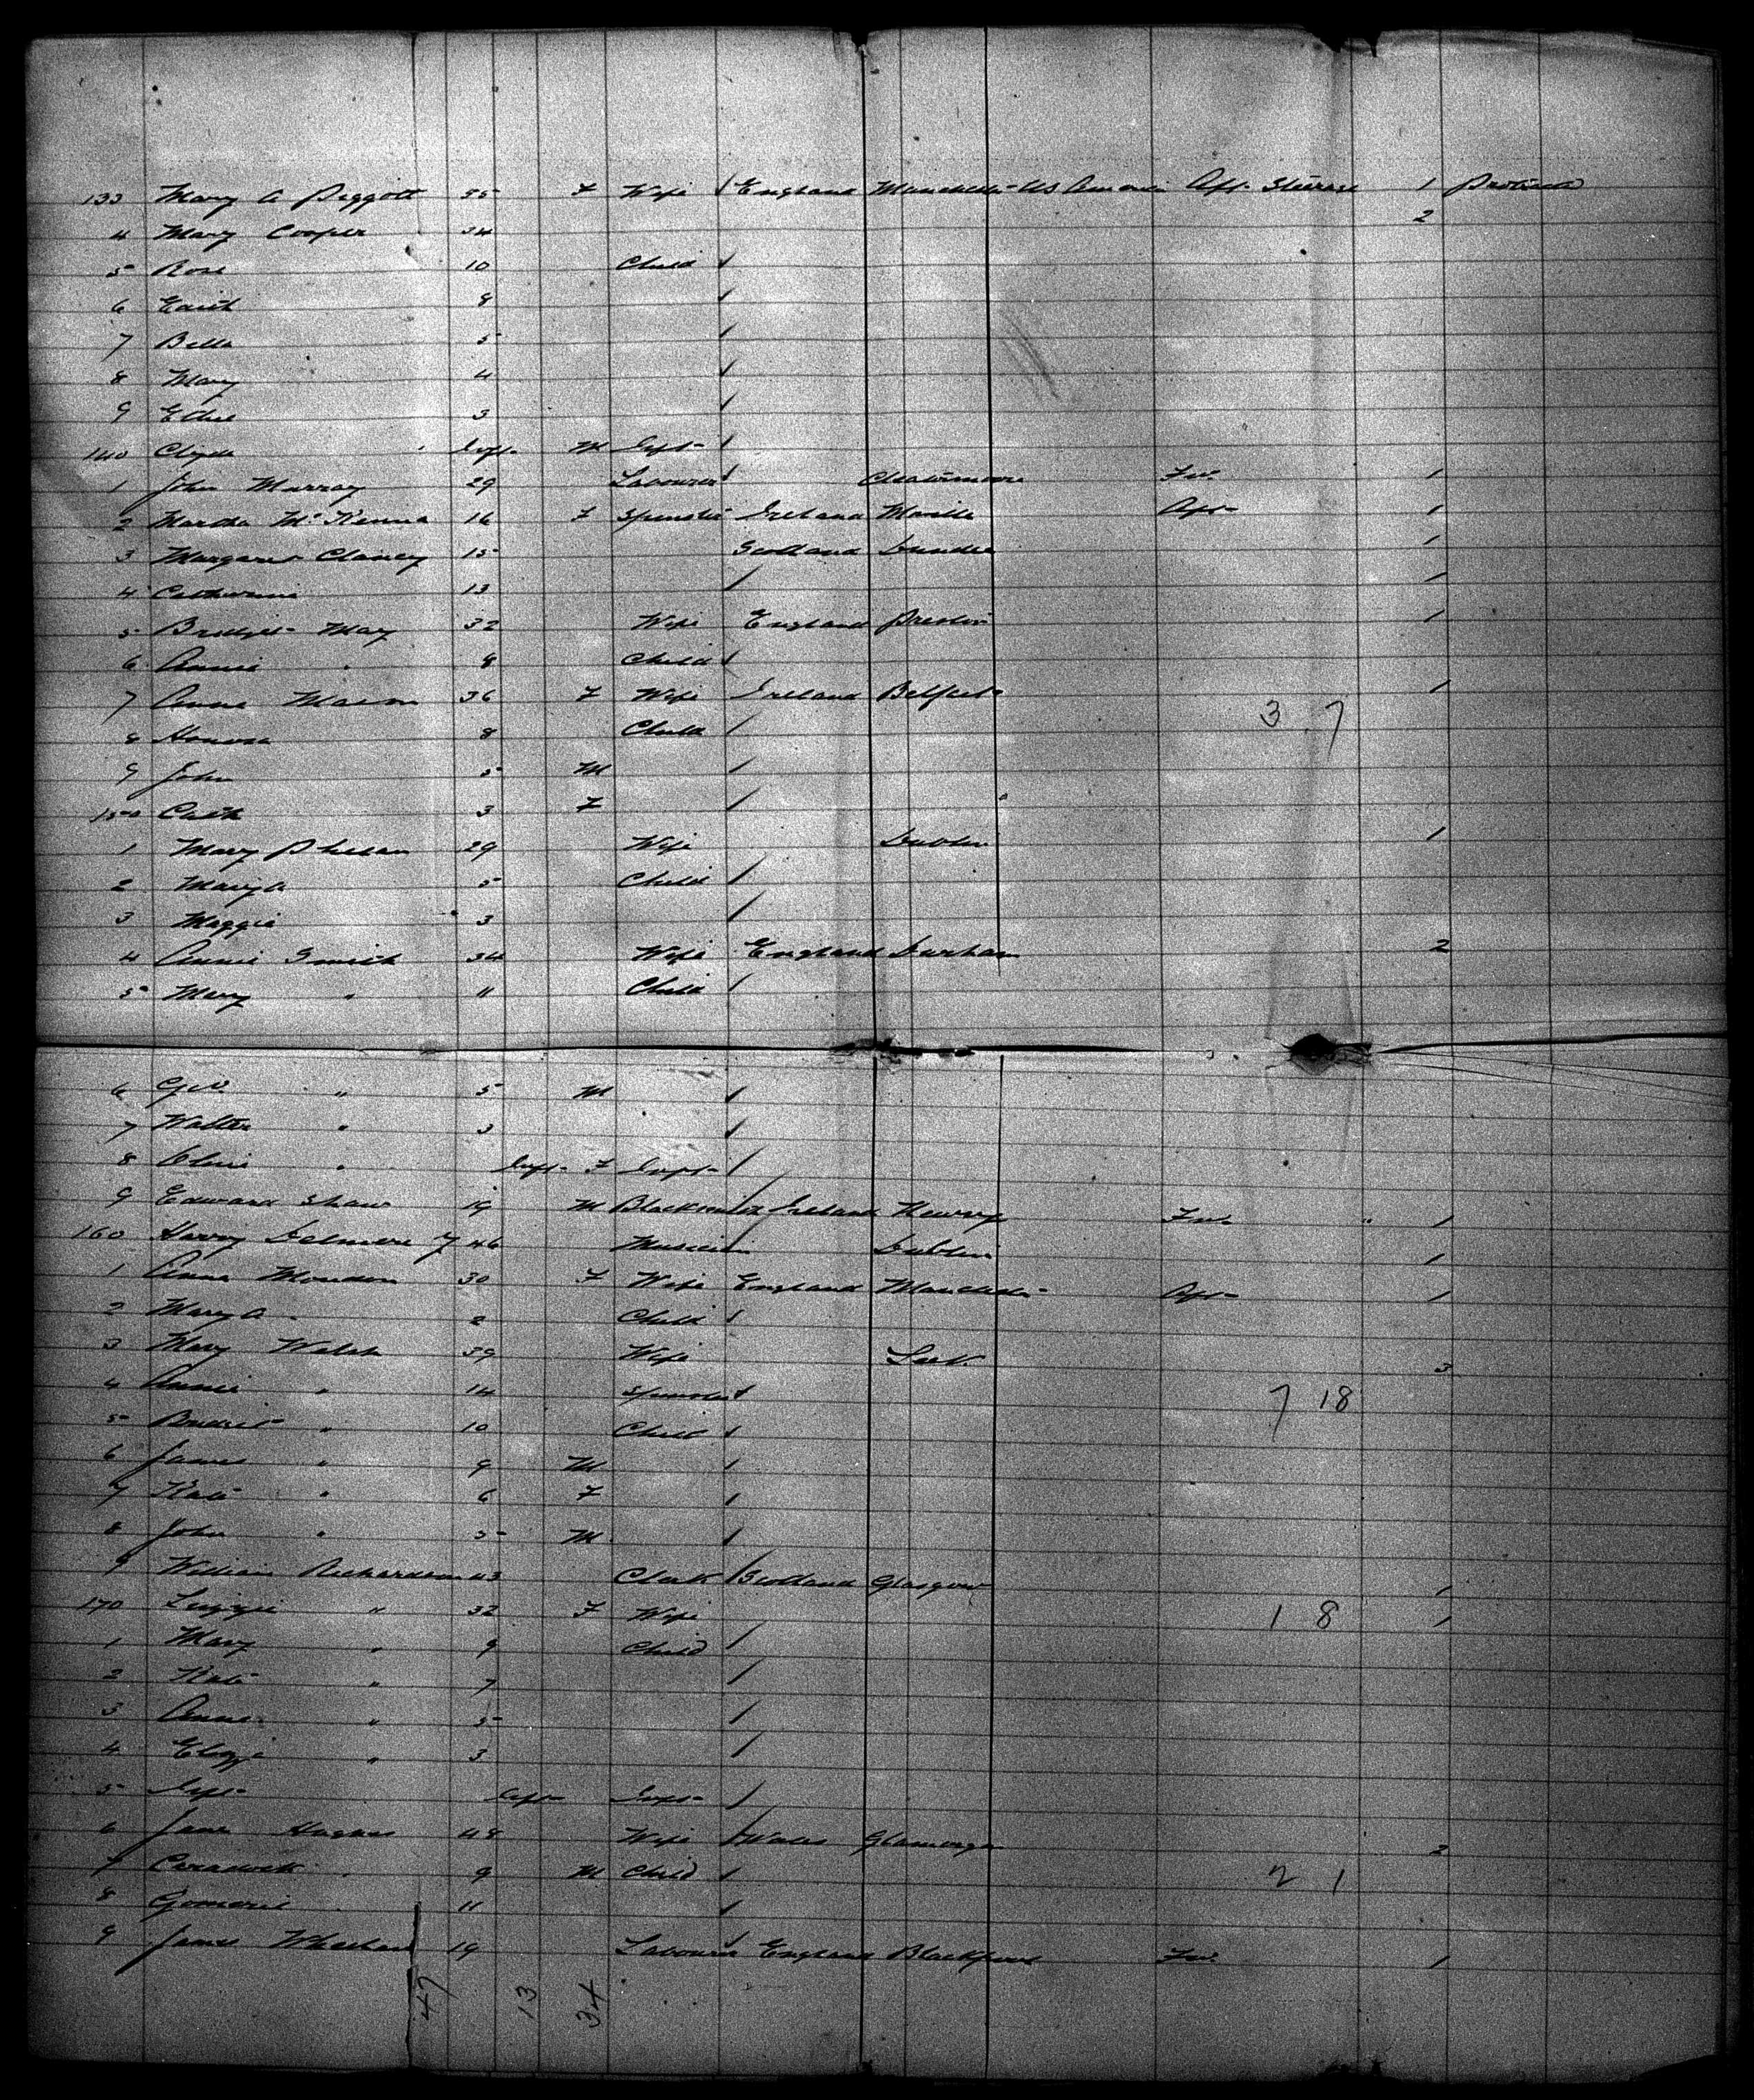 133 Mary A Piggott 55 F Wife England Manchester US America Aft Steerage 1 Protracted
4 Mary Cooper 34 2
5 Rose 10 Child
6 Edith 8
7 Bella 5
8 Mary 4
9 Ethel 3
140 Clyde Inft M Inft
1 John Murray 29 Labourer Cleatormoore Fwd 1
2 Martha McKenna 16 F Spinster Ireland Moville Aft 1
3 Margaret Clancy 15 Scotland Dundee 1
4 Catherine 13 1
5 Bridget May 32 Wife England Preston 1
6 Annie " 8 Child
7 Anne Mason 36 F Wife Ireland Belfast 1
3 7
8 Honora 8 Child
9 John 5 M
150 Cath 3 F
1 Mary Phelan 29 Wife Dublin 1
2 Mary A 5 Child
3 Maggie 3
4 Annie Smith 34 Wife England Durham 2
5 Mary " 11 Child
6 Geo. " 5 M
7 Walter " 3
8 " Inft F Inft
9 Edward Shaw 19 M Blacksmith Ireland Newry Fwd " 1
160 Harry Delmere 46 Musician Dublin 1
1 Anne 30 F Wife England Manchester Aft 1
2 Mary A 2 Child
3 Mary Welsh 39 Wife 3
4 Annie " 14 Spinster
7 18
5 Bridget " 10 Child
6 James " 9 M
7 Kate " 6 F
8 John " 5 M
9 William Richardson 43 Clerk Scotland Glasgow 1
170 Lizzie " 32 F Wife 1 8 1
1 Mary " 9 Child
2 Kate " 7
3 Anne " 5
4 " 3
5 Inft Inft Inft
6 Jane Hughes 48 Wife Wales Glamorgan 2
7 " 9 M Child 2 1
8 11
9 James Wheelan 19 Labourer England Blackpool Fwd 1
47 13 34